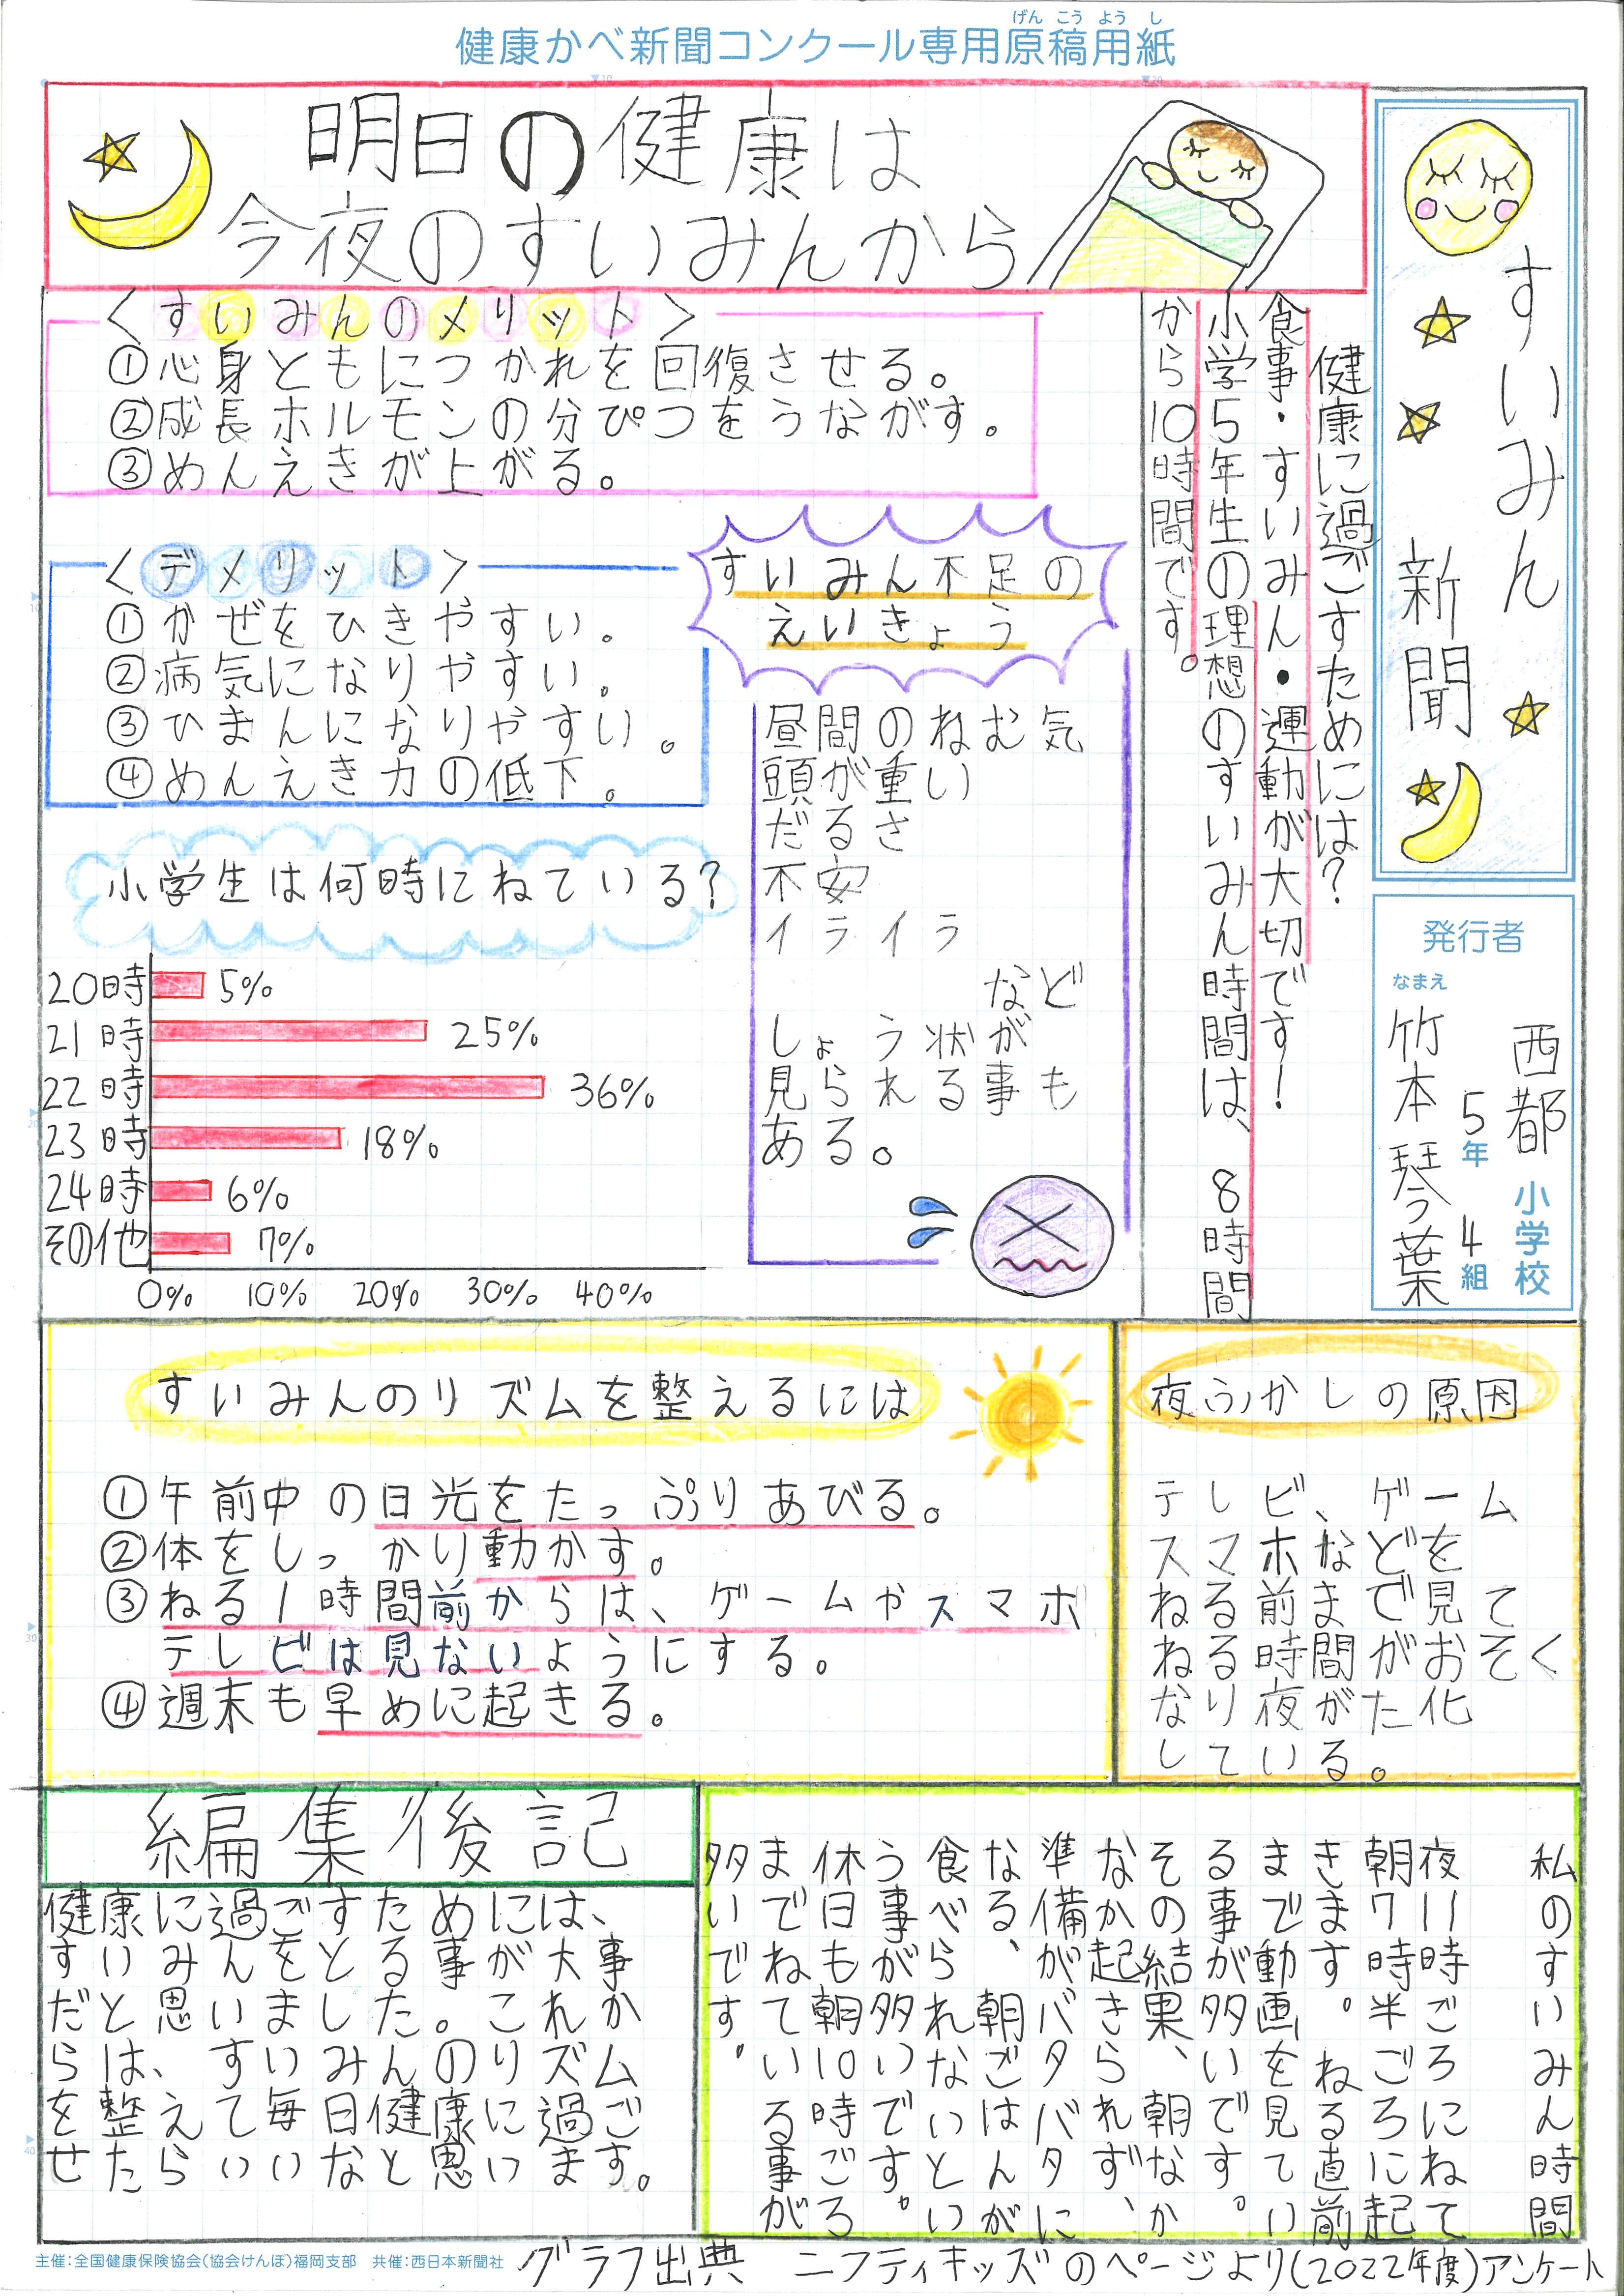 健康かべ新聞コンクール専用原稿用紙
げん こう よう し
すいみん
新聞
発行者
なまえ
西都小学校
5年 4組
竹本琴葉
明日の健康は
今夜のすいみんから
健康に過ごすためには？
食事・すいみん・運動が大切です！
小学5年生の理想のすいみん時間は、8時間
から10時間です。
＜すいみんのメリット＞
①心身ともにつかれを回復させる。
②成長ホルモンの分ぴつをうながす。
③めんえきが上がる。
＜デメリット＞
①かぜをひきやすい。
②病気になりやすい。
③ひまんになりやすい。
④めんえき力の低下。
すいみん不足の
えいきょう
昼間のねむ気
頭が重い
だるさ
不安
イライラ
など
しょう状が
見られる事も
ある。
小学生は何時にねている？
20時 5%
21時 25%
22時 36%
23時 18%
24時 6%
その他 7%
0% 10% 20% 30% 40%
すいみんのリズムを整えるには
①午前中の日光をたっぷりあびる。
②体をしっかり動かす。
③ねる1時間前からは、ゲームやスマホ
テレビは見ないようにする。
④週末も早めに起きる。
夜ふかしの原因
テレビ、ゲーム
スマホなどを
ねる前まで見て
ねる時間がおそく
なり夜がた化
している。
私のすいみん時間
夜11時ごろにねて
朝7時半ごろに起
きます。ねる直前
まで動画を見てい
る事が多いです。
その結果、朝なか
なか起きられず、
準備がバタバタに
なる、朝ごはんが
食べられないとい
う事が多いです。
休日も朝10時ごろ
までねている事が
多いです。
編集後記
健康に過ごすためには、
すいみんをとる事が大事
だと思いました。これか
らは、すいみんのリズム
を整えて毎日健康に過ご
せたらいいなと思います。
主催：全国健康保険協会（協会けんぽ）福岡支部　共催：西日本新聞社
グラフ出典 ニフティキッズのページより（2022年度）アンケート